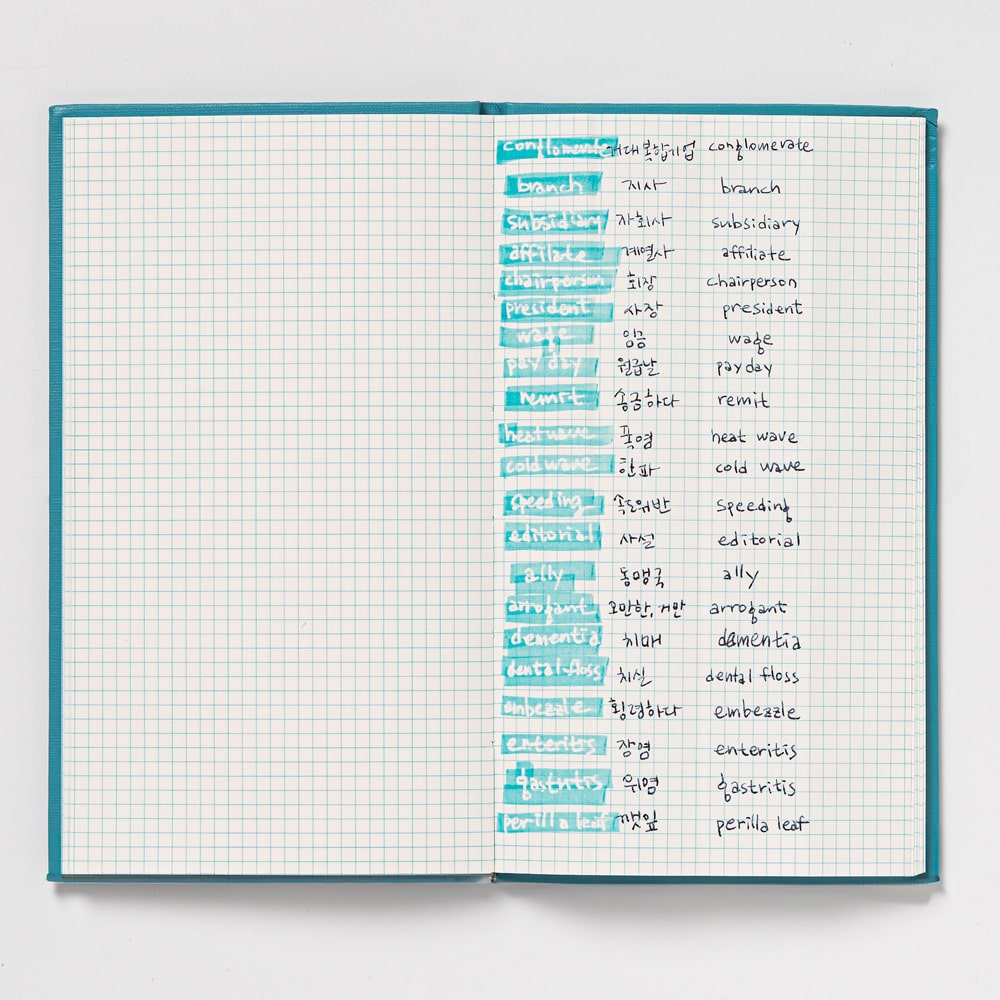 conglomerate 거대복합기업 conglomerate
branch 지사 branch
subsidiary 자회사 subsidiary
affilate 계열사 affiliate
chairperson 회장 chairperson
president 사장 president
wage 임금 wage
pay day 월급날 pay day
remit 송금하다 remit
heat wave 폭염 heat wave
cold wave 한파 cold wave
speeding 속도위반 speeding
editorial 사설 editorial
ally 동맹국 ally
arrogant 오만한, 거만 arrogant
dementia 치매 dementia
dental-floss 치실 dental floss
embezzle 횡령하다 embezzle
enteritis 장염 enteritis
gastritis 위염 gastritis
perilla leaf 깻잎 perilla leaf